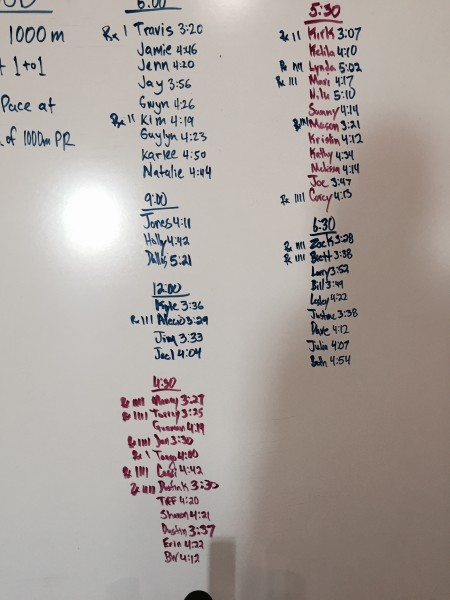 1000m
1 to 1
Pace at
of 1000m PR
6:00
Rx I Travis 3:20
Jamie 4:46
Jenn 4:20
Jay 3:56
Gwyn 4:26
Rx II Kim 4:19
Gaylyn 4:23
Karlee 4:50
Natalie 4:44
9:00
Jones 4:11
Holly 4:42
Dallas 5:21
12:00
Kyle 3:36
Rx III Alecio 3:29
Jim 3:33
Joel 4:04
4:30
Rx IIII Manny 3:27
Rx IIII Torrey 3:25
4:19
Rx IIII Jon 3:30
Rx I Tango 4:00
Rx IIII Cassi 4:42
Rx IIII Dustin K 3:30
Tiff 4:20
Shannon 4:21
Dustin 3:37
Erin 4:22
BW 4:12
5:30
Rx II Kirk 3:07
Kalila 4:10
Rx Lynda 5:02
Rx III Mari 4:17
5:10
Sammy 4:14
Mason 3:21
Kristin 4:12
Kathy 4:34
Melissa 4:14
Joe 3:47
Rx IIII Corey 4:13
6:30
Rx IIII Zack 3:28
Rx IIII Brett 3:38
Larry 3:52
Bill 3:49
Lesley 4:22
Justine 3:38
Dave 4:12
Julia 4:07
Beth 4:54